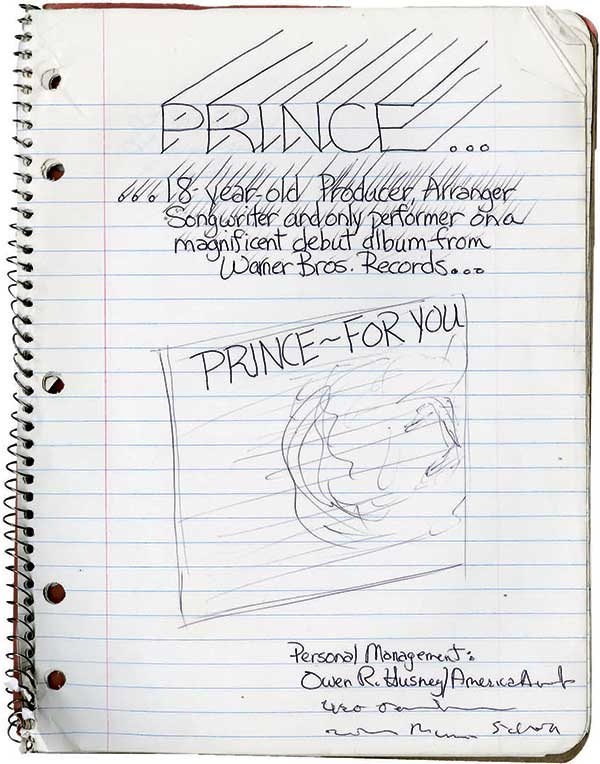 PRINCE...
...18-year-old Producer, Arranger
Songwriter and only performer on a
magnificent debut album from
Warner Bros. Records...
PRINCE~FOR YOU
Personal Management:
Owen R. Husney/American